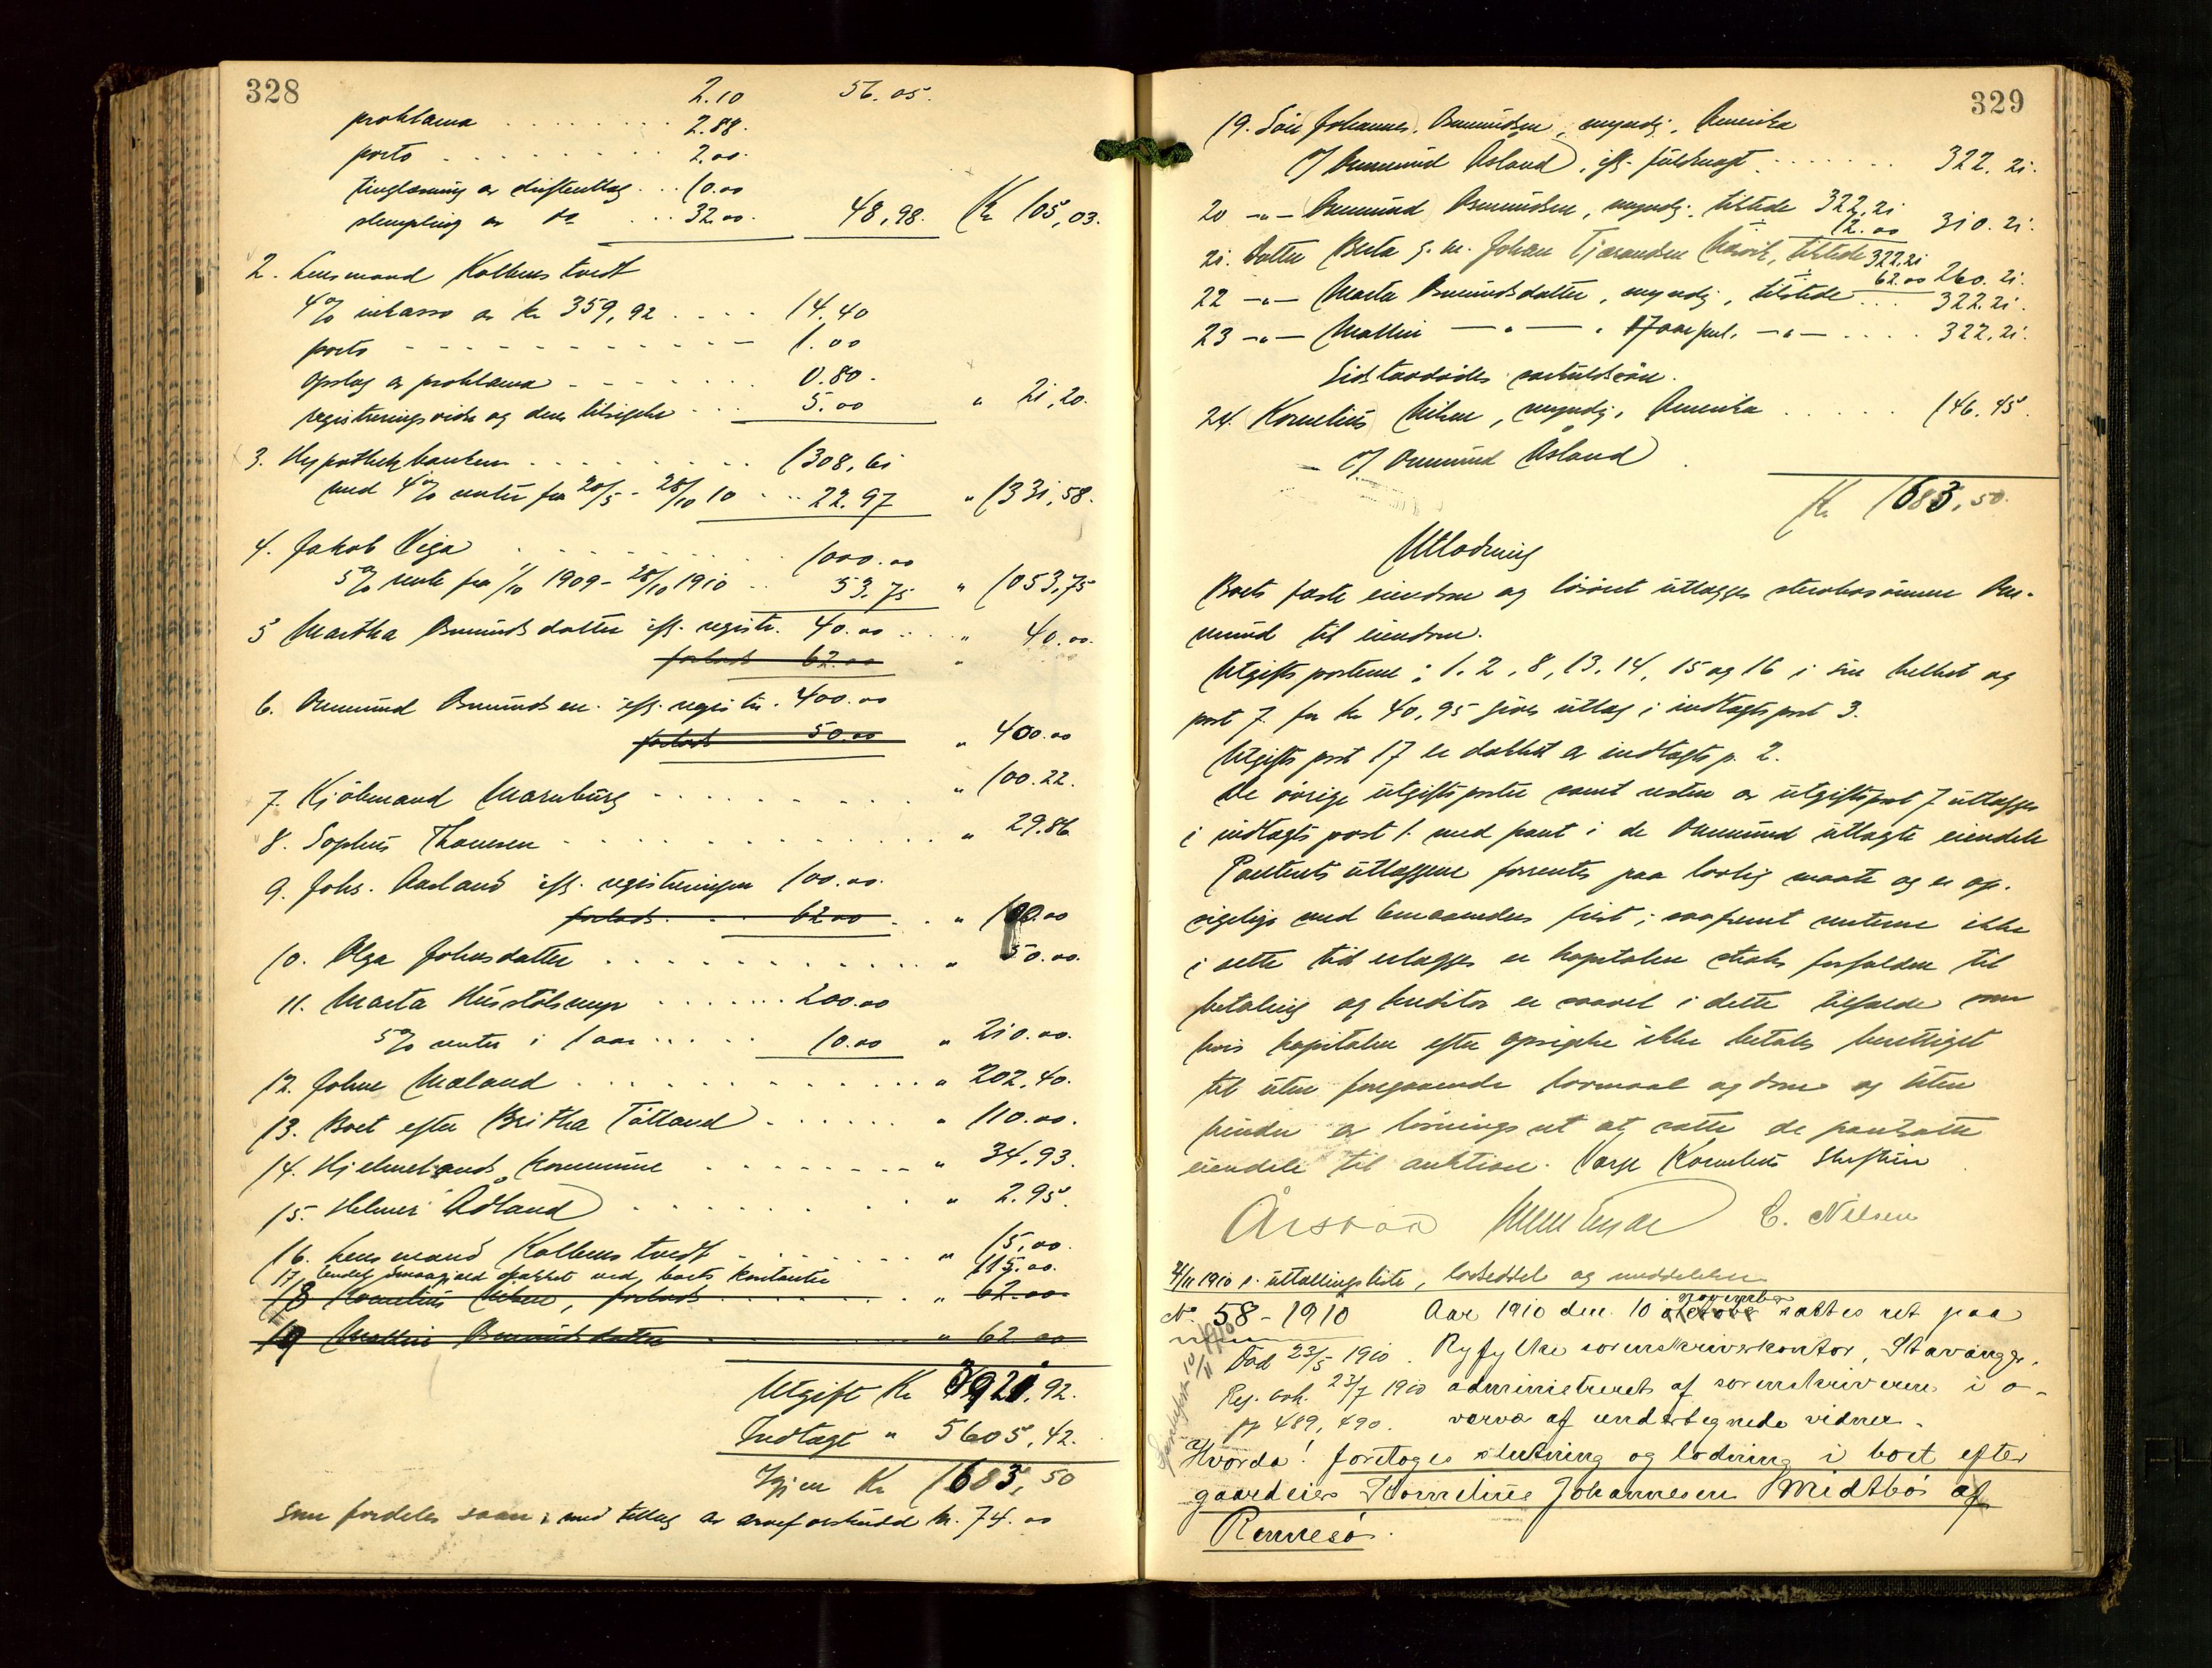 328
2.10 56.05.
proklama . . . . . . . . 2.88.
porto . . . . . . . . . 2.00.
tinglæsning av skifteutlæg . . . 10.00
stempling av do . . . 32.00. 48,98. Kr 105,03.
2. Lensmand Kolbenstvedt
4% inkasso av kr 359,92 . . . . 14.40
porto - - - - - - - - - - - 1.00
Opslag av proklama - - - - - - 0.80.
registreringsvidn og deres tilsigelse . . . 5.00 " 21,20.
3. Hypothekbanken . . . . . . . . 1308,61
med 4% renter fra 20/5 - 28/10 10 . . . 22.97 " 1331,58.
4. Jakob Viga . . . . . . . . 1000.00
5% rente fra 1/10 1909 - 28/10 1910 . . 53.75 " 1053,75
5 Martha Osmundsdatter ifl. registr. 40.00 . . . " 40.00.
forlods 62.00 "
6. Ommund Osmundsen ifl. registr. 400.00
forlods 50.00 " 400.00
7. Kjöbmand Marnburg - . . . . . . " 100.22.
8. Sophus Thomsen . . . . . . . . . . " 29.86
9. Johs. Aasland ifl. registreringen 100.00.
forlods . . . 62.00 . . " 100.00
10. Olga Johnsdatter . . . . . . . . . . " 50.00.
11. Marta Husstölsmyr . . . . . . . 200.00
5% renter i 1 aar . . . . . 10.00 " 210.00.
12. Johne Mæland . . . . . . . . . . . " 202.40.
13. Boet efter Britha Tötland . . . . . . " 110.00.
14. Hjelmelands kommune . . . . . . . . " 34.93.
15. Helmer Ådland . . . . . . . . . " 2.95.
16. Lensmand Kolbenstvedt . . . . . . " 15,00.
17, endel smaagjæld dækket ved boets kontanter 115.00.
18 Kornelius Nilsen, forlods . . . . . . " 62.00
19 Mallini Osmundsdatter " 62.00
Utgift Kr 3921,92.
Indtægt " 5605,42.
Igjen Kr 1683,50
Som fordeles saan: med tillæg av arveforskudd kr. 74.00
329
19. Sön Johannes Osmundsen, myndig, Amerika
v/ Ommund Åsland, ifl. fuldmagt . . . . . . . 322.21.
20 -"- Ommund Osmundsen, myndig, tilstede 322,21
12.00 310.21.
21. Datter Berta g. m. Johan Tjerandsen tilstede 322,21
62.00 260.21.
22 -"- Marta Osmundsdatter, myndig, tilstede . . . 322.21.
23 -"- Mallini -"- , 17 aar gml. -"- . . . . 322.21.
Sidstavdödes særkuldsön.
24. Kornelius Nilsen, myndig, Amerika . . . . . 146.45.
v/ Ommund Åsland
Kr 1683,50.
Utlodning
Boets faste eiendom og lösöret utlægges sterbosönnen Om-
mund til eiendom.
Utgiftsposterne: 1. 2, 8, 13, 14, 15 og 16 i sin helhet og
post 7. for kr 40,95 gives utlæg i indtægtspost 3.
Utgiftspost 17 er dækket av indtægtsp. 2.
De övrige utgiftsposter samt resten av utgiftspost 7 utlægges
i indtægtspost 1. med pant i de Ommund utlagte eiendele
Panteutlæggene forrentes paa lovlig maate og er op-
sigelige med 6 maaneders frist; saafremt renterne ikke
i rette tid erlægges er kapitalen straks forfalden til
betaling og kreditor er saavel i dette tilfælde som
hvis kapitalen efter opsigelse ikke betales berettiget
til uten foregaaende lovmaal og dom og uten
hinder av lösningsret at sætte de pantsatte
eiendele til auktion. Værge Kornelius
C. Nilsen
4/11 1910 s. uttællingsliste, lodseddel og meddelelser
No 58 - 1910 Aar 1910 den 10 oktober november sattes ret paa
Död 23/5 1910. Ryfylke sorenskriverkontor, Stavanger,
Reg. avh. 23/7 1910 administreret af sorenskriveren i o-
pp 489, 490. vervær af undertegnede vidner.
Hvorda! foretoges slutning og lodning i boet efter
gaardeier Kornelius Johannesen Midtbö af
Rennesö.